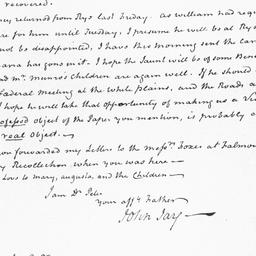 recovered.
ey returned from Rye last Friday. as William had requ
re for him until Tuesday, I presume he will be at Rye
not be disappointed, I have this morning sent the Car
aria has gone in it. I hope the Jaunt will be of some Bene
and Mrs. Munro's Children are again well. If he should
Federal meeting at the White plains, and the Roads a
I hope he will take that opportunity of making us a Vi
ofessed object of the Paper you mention, is probably a
real object. —
you forwarded my Letters to the Messrs. Boxes at Falmou
y Recollection when you was here —
Love to mary, augusta, and the Children —
I am Dr. Peter
your afft. Father
John Jay —